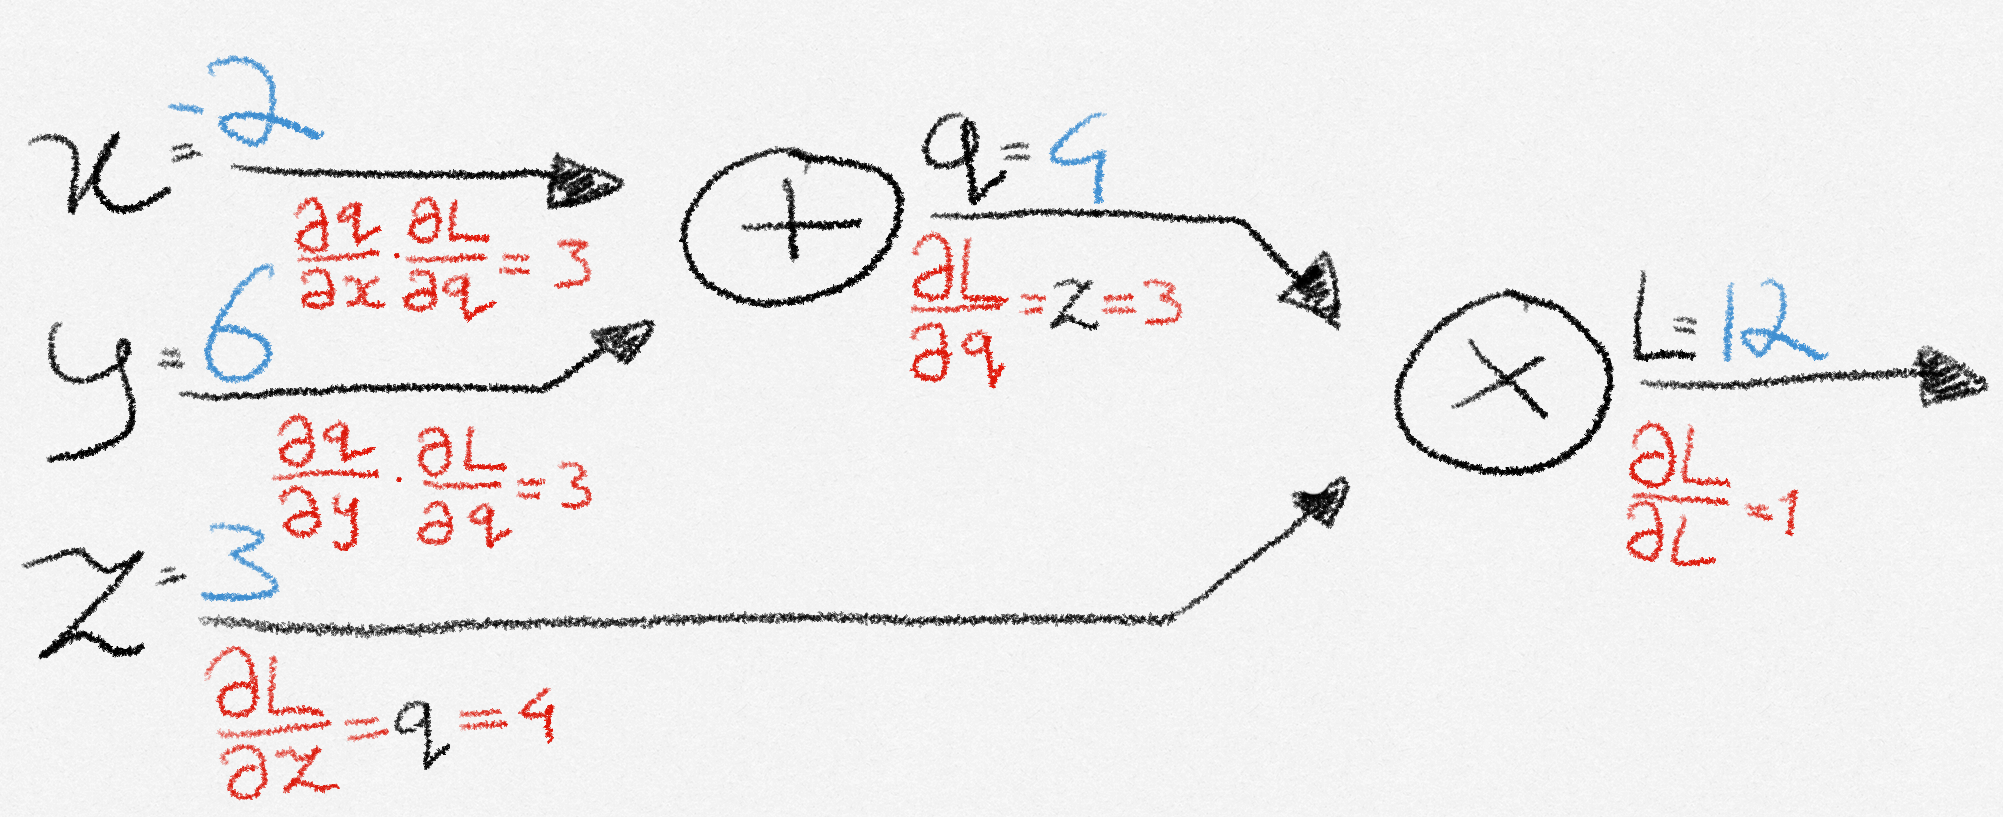 x = -2
∂q/∂x · ∂L/∂q = 3
y = 6
∂q/∂y · ∂L/∂q = 3
z = 3
∂L/∂z = q = 4
+
q = 4
∂L/∂q = z = 3
×
L = 12
∂L/∂L = 1